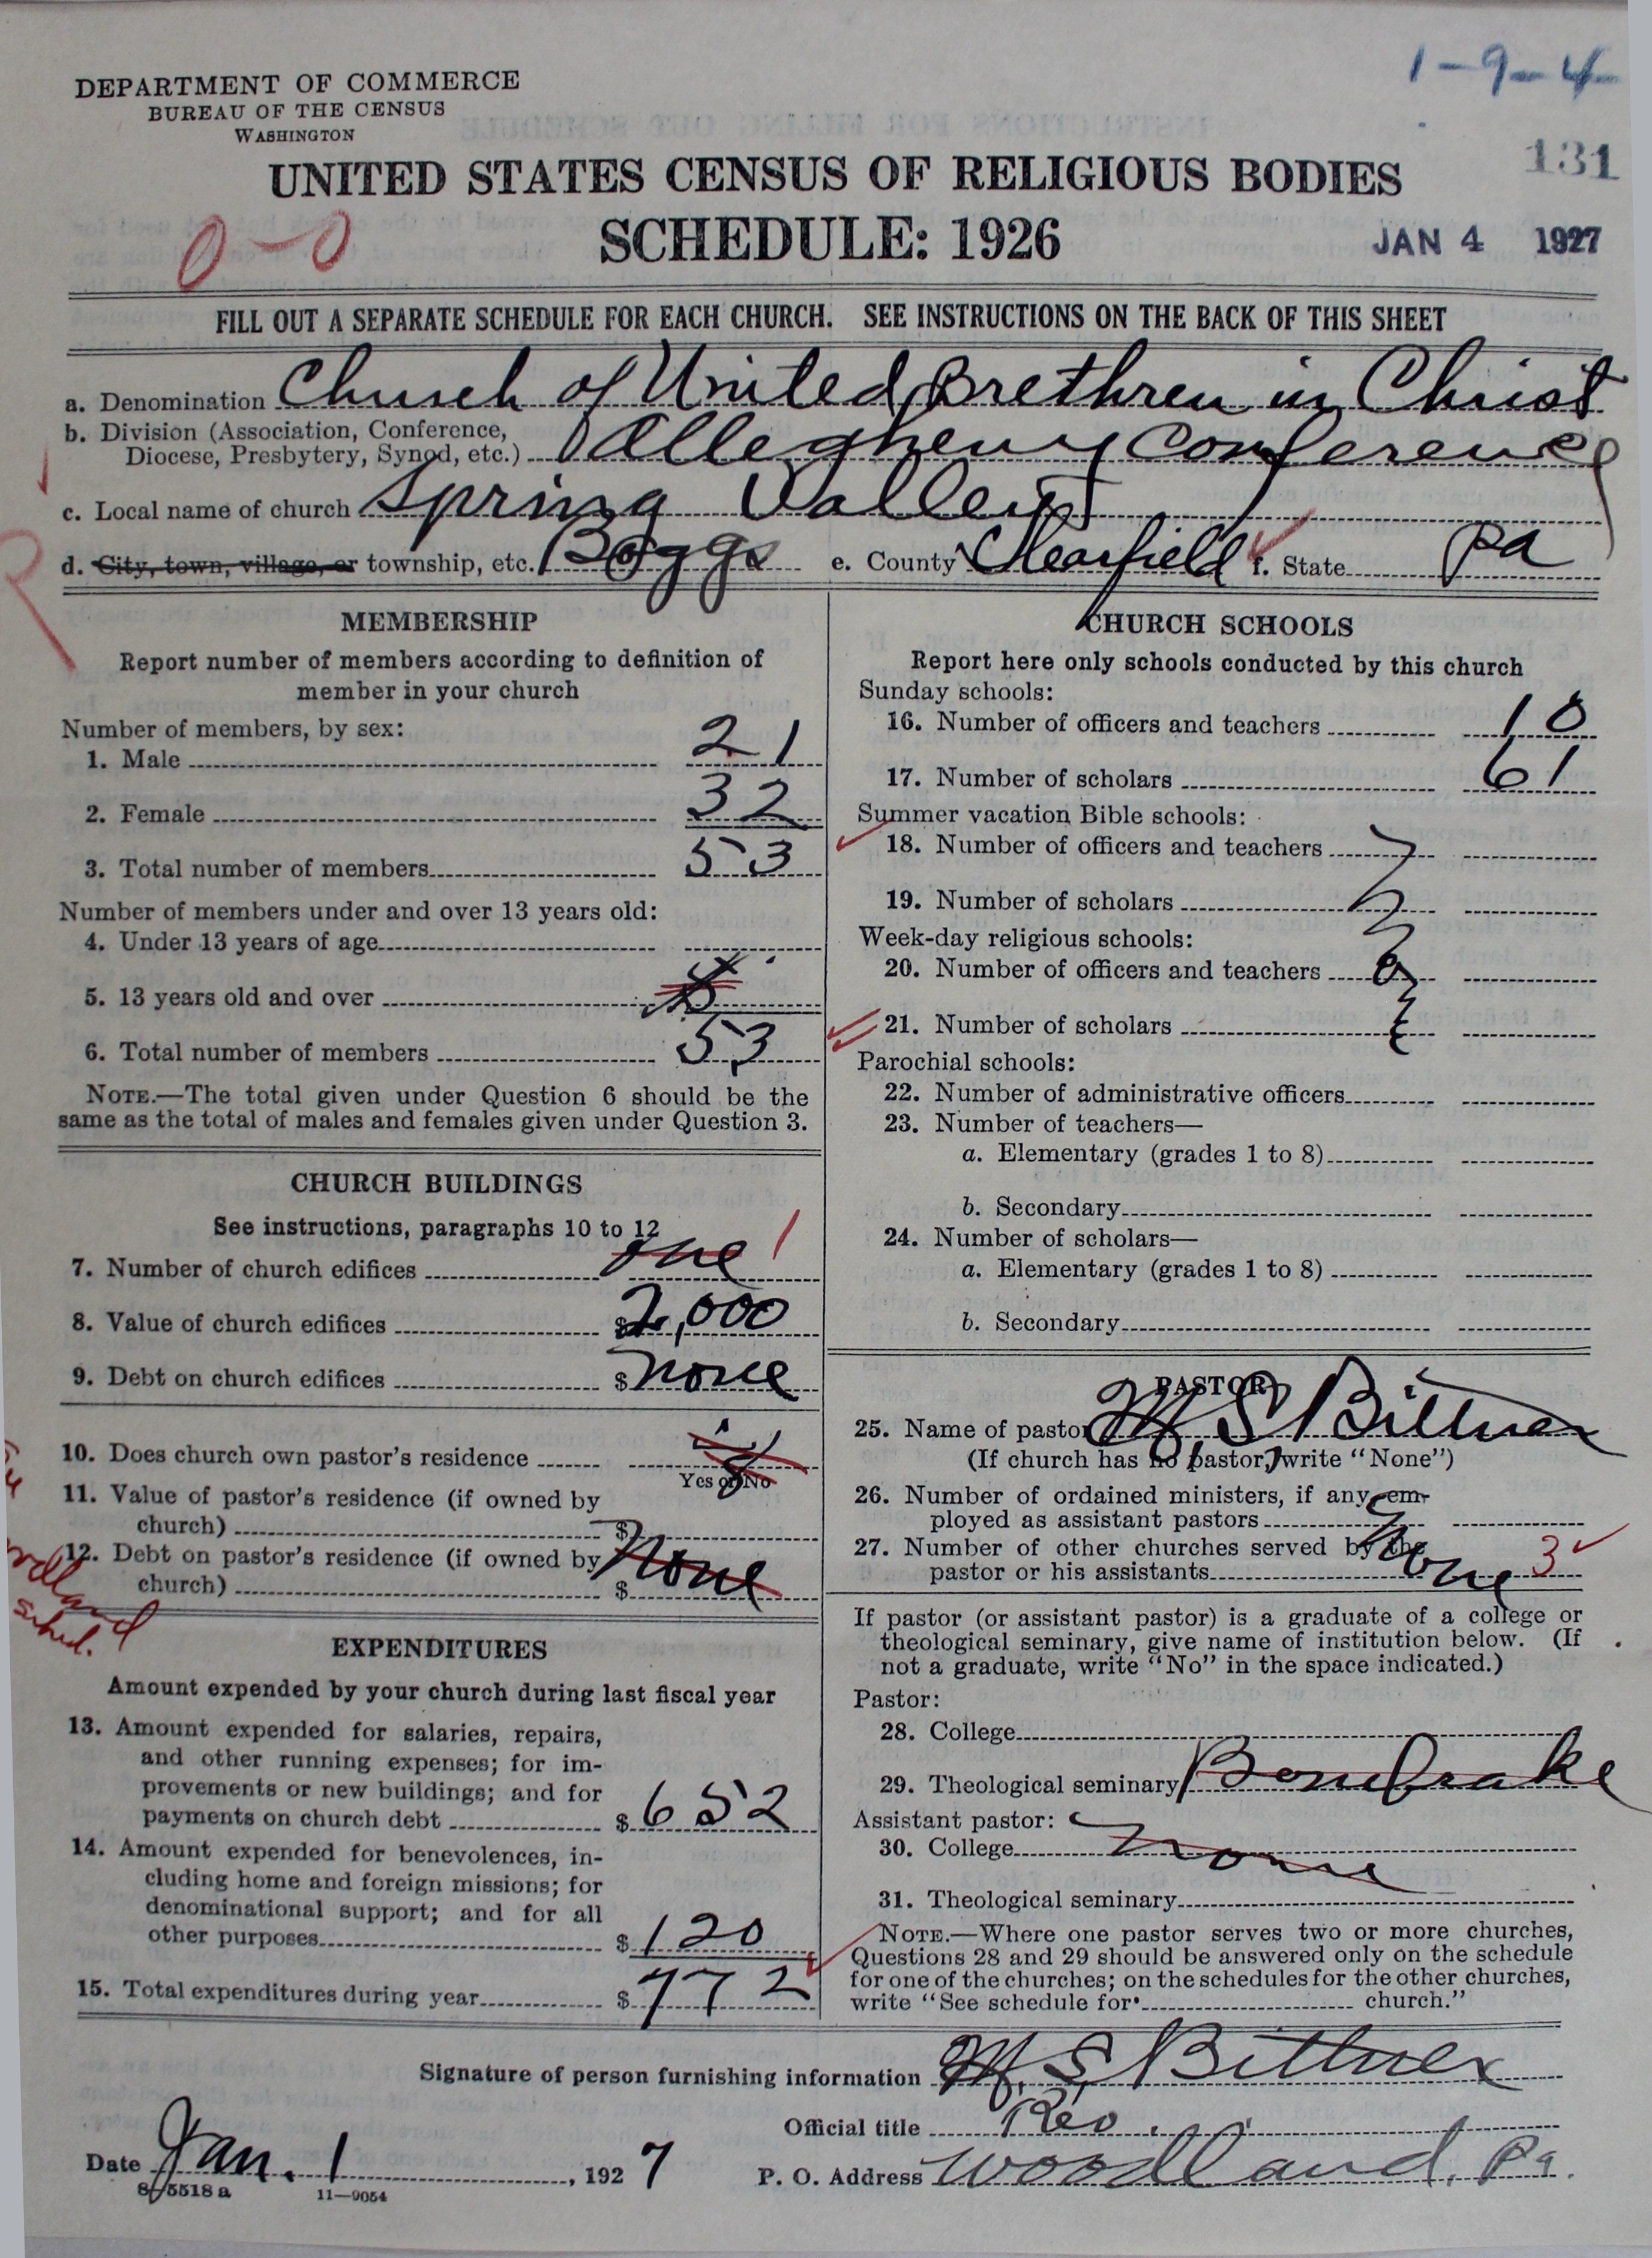 1-9-4
DEPARTMENT OF COMMERCE
BUREAU OF THE CENSUS
WASHINGTON
131
UNITED STATES CENSUS OF RELIGIOUS BODIES
0-0
SCHEDULE: 1926
JAN 4 1927
FILL OUT A SEPARATE SCHEDULE FOR EACH CHURCH. SEE INSTRUCTIONS ON THE BACK OF THIS SHEET
a. Denomination Church of United Brethren in Christ
b. Division (Association, Conference, Diocese, Presbytery, Synod, etc.) Allegheny Conference
c. Local name of church Spring Valley
d. City, town, village, or township, etc. Boggs e. County Clearfield f. State Pa
R
MEMBERSHIP
Report number of members according to definition of
member in your church
Number of members, by sex:
1. Male 21
2. Female 32
3. Total number of members 53
Number of members under and over 13 years old:
4. Under 13 years of age
5. 13 years old and over
6. Total number of members 53
NOTE.—The total given under Question 6 should be the
same as the total of males and females given under Question 3.
CHURCH BUILDINGS
See instructions, paragraphs 10 to 12
7. Number of church edifices one 1
8. Value of church edifices $2,000
9. Debt on church edifices $ none
10. Does church own pastor's residence
Yes or No
11. Value of pastor's residence (if owned by
church) $
12. Debt on pastor's residence (if owned by
church) $ None
EXPENDITURES
Amount expended by your church during last fiscal year
13. Amount expended for salaries, repairs,
and other running expenses; for im-
provements or new buildings; and for
payments on church debt $ 652
14. Amount expended for benevolences, in-
cluding home and foreign missions; for
denominational support; and for all
other purposes $ 120
15. Total expenditures during year $ 772
CHURCH SCHOOLS
Report here only schools conducted by this church
Sunday schools:
16. Number of officers and teachers 10
17. Number of scholars 61
Summer vacation Bible schools:
18. Number of officers and teachers
19. Number of scholars
Week-day religious schools:
20. Number of officers and teachers
21. Number of scholars
Parochial schools:
22. Number of administrative officers
23. Number of teachers—
a. Elementary (grades 1 to 8)
b. Secondary
24. Number of scholars—
a. Elementary (grades 1 to 8)
b. Secondary
PASTOR
25. Name of pastor M. S. Bittner
(If church has no pastor, write "None")
26. Number of ordained ministers, if any, em-
ployed as assistant pastors
27. Number of other churches served by the
pastor or his assistants None 3
If pastor (or assistant pastor) is a graduate of a college or
theological seminary, give name of institution below. (If
not a graduate, write "No" in the space indicated.)
Pastor:
28. College
29. Theological seminary Bonebrake
Assistant pastor:
30. College none
31. Theological seminary
NOTE.—Where one pastor serves two or more churches,
Questions 28 and 29 should be answered only on the schedule
for one of the churches; on the schedules for the other churches,
write "See schedule for church."
Signature of person furnishing information M. S. Bittner
Official title Rev.
Date Jan. 1, 1927
P. O. Address Woodland, Pa.
8-5518 a 11—9054